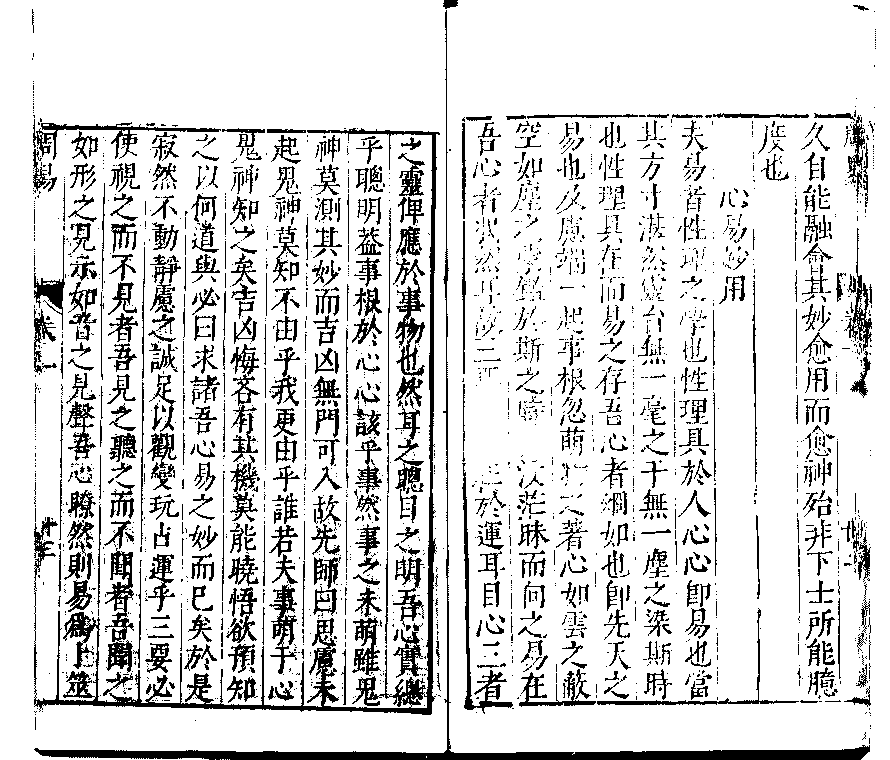 久自能融會其妙愈用而愈神殆非下士所能臆
度也
心易妙用
夫易者性理之學也性理具於人心心卽易也當
其方寸湛然靈台無一毫之干無一塵之染斯時
也性理具在而易之存吾心者綱如也卽先天之
易也及慮端一起事根忽萌物之著心如雲之蔽
空如塵之於斯之時 汶茫昧而向之易在
吾心者 然耳故三 在於運耳目心三者
之靈俾應於事物也然耳之聰目之明吾心實總
乎聰明葢事根於心心該乎事然事之未萌雖鬼
神莫測其妙而吉凶無門可入故先師曰思慮未
起鬼神莫知不由乎我更由乎誰若夫事萌于心
鬼神知之矣吉凶悔吝有其機莫能曉悟欲預知
之以何道與必曰求諸吾心易之妙而已矣於是
寂然不動靜慮之誠足以觀變玩占運乎三要必
使視之而不見者吾見之聽之而不聞者吾聞之
如形之見示如音之見聲吾心瞭然則易爲卜筮
周易
卷一
廿三